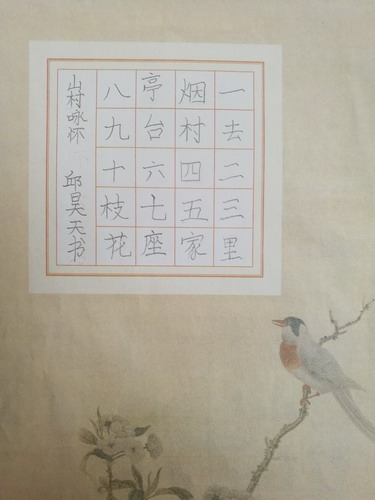 一去二三里
烟村四五家
亭台六七座
八九十枝花
山村咏怀 邱昊天书